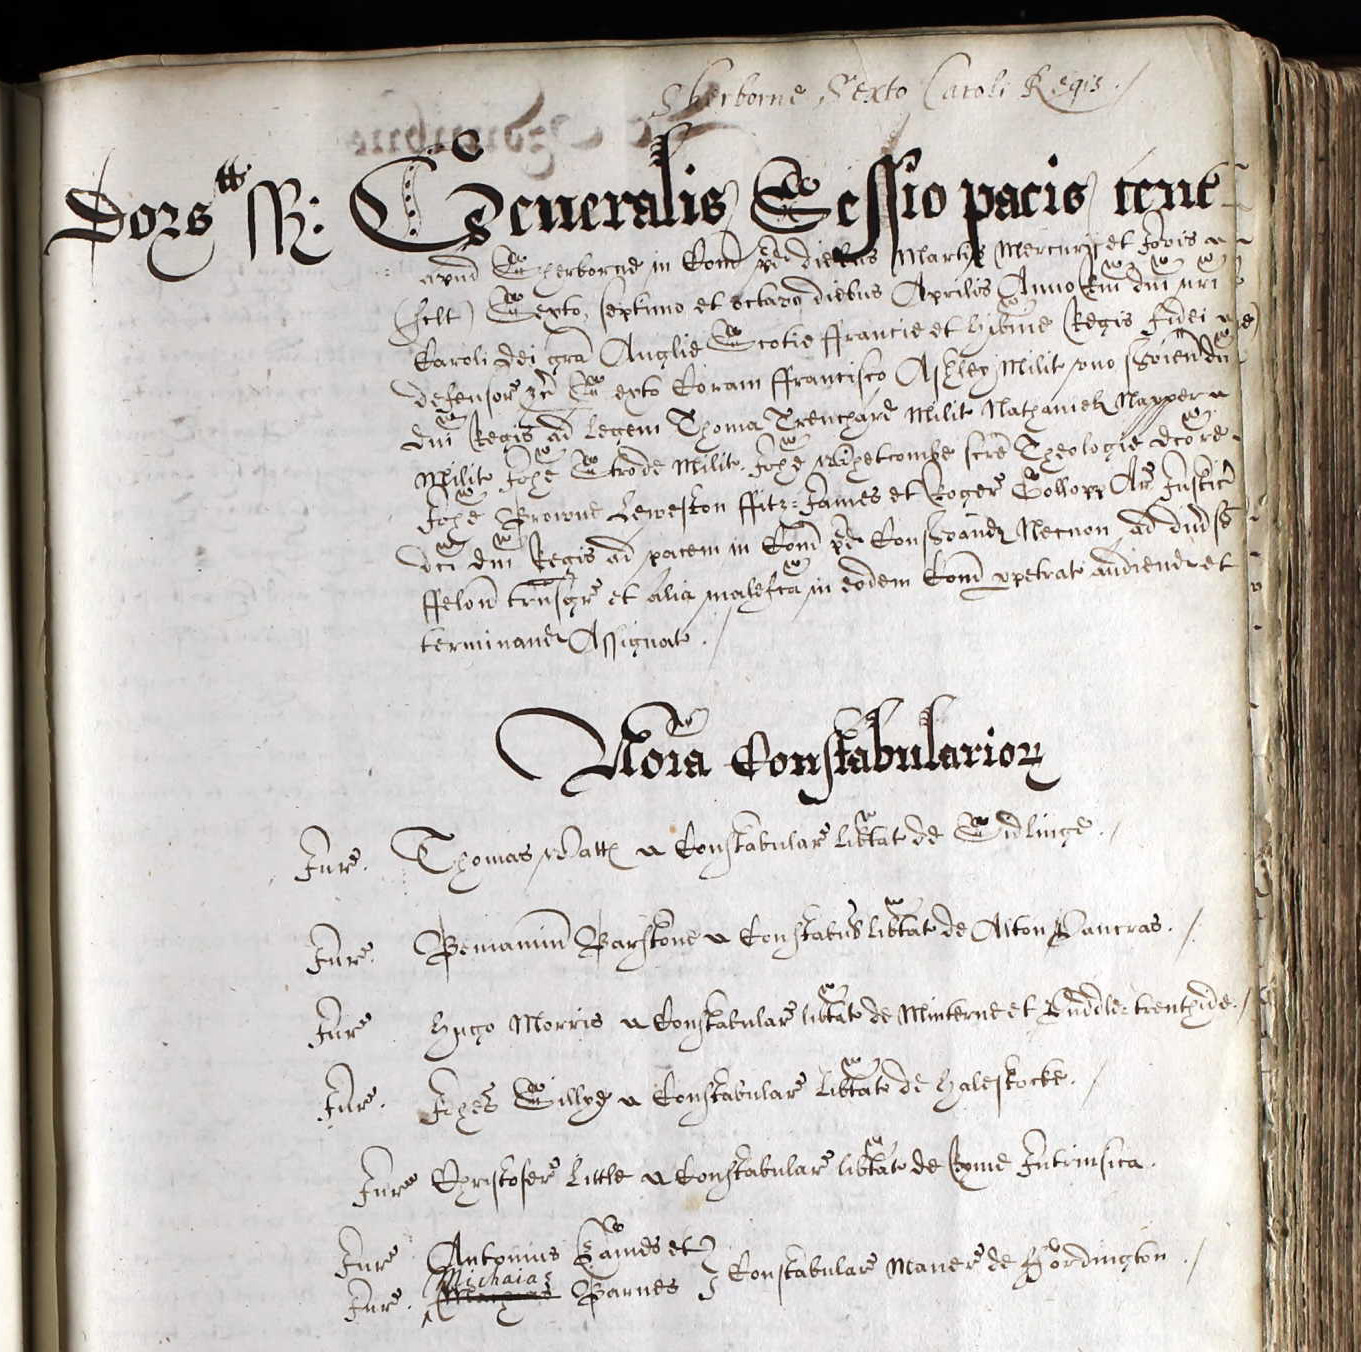 Sherborne Sexto Caroli Regis
Dorstt ss: Generalis Sessio pacis tent
apud Sherborne in Com pd diebus Martis Mercurij et Jovis
(scilt) Sexto, septimo et octavo diebus Aprilis Anno Rni dni nri
Caroli dei gra Anglie Scotie ffrancie et Hibnie Regis fidei
defensor &c Sexto Coram ffrancisco Ashley Milit uno Svien
dni Regis ad Legem Thoma Trenchard Milit Nathaniel Napper
Milit Johe Strode Milit Johe Whetcombe scre Theologie dcore
Johe Browne Leweston ffitz-James et Roger Gollopp Ar Justic
dci dni Regis ad pacem in Com pd Consvand Necnon ad
ffelon trnsgr et alia malefca in eodem Com ppetrat audiend et
terminand Assignat
Noia Constabularior
Jur Thomas Watts Constabular libtat de Sidlinge
Jur Beniamin Barstone Constabular libtat de Alton Pancras
Jur Hugo Morris Constabular libtat de Minterne et Puddle-trenthide
Jur Johes Gillye Constabular libtat de Halestocke
Jur Christofer Little Constabular libtat de Ryme Intrinsica
Jur Antonius Eames et
Jur Michaias Barnes Constabular Maner de Fordington